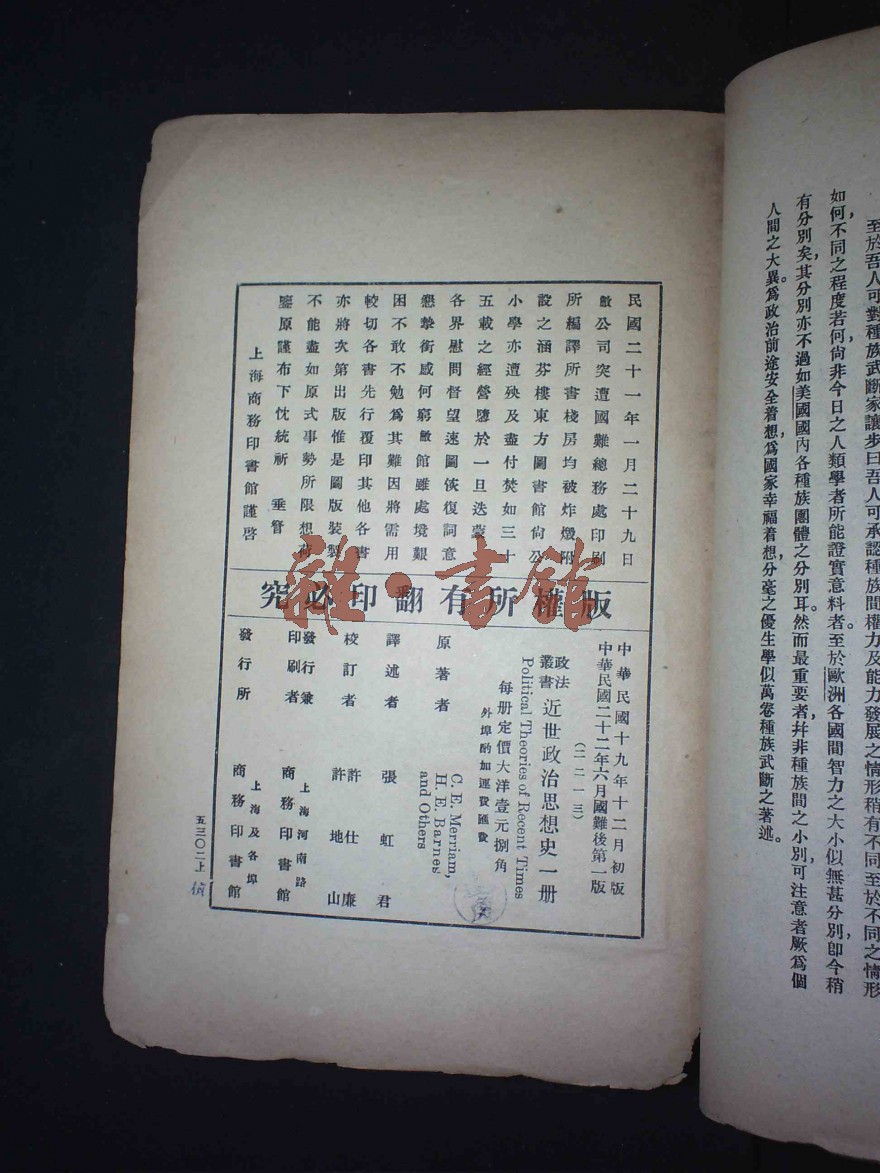 至於吾人可對種族武斷家讓步曰吾人可承認種族間權力及能力發展之情形稍有不同至於不同之情形
如何,不同之程度若何,尙非今日之人類學者所能證實意料者。至於歐洲各國間智力之大小似無甚分別,卽今稍
有分別矣,其分別亦不過如美國國內各種族團體之分別耳。然而最重要者,幷非種族間之小別,可注意者厥爲個
人間之大異。爲政治前途安全着想,爲國家幸福着想,分毫之優生學似萬卷種族武斷之著述。
民國二十一年一月二十九日
敝公司突遭國難總務處印刷
所編譯所書棧房均被炸燬附
設之涵芬樓東方圖書館尙公
小學亦遭殃及盡付焚如三十
五載之經營隳於一旦迭蒙
各界慰問督望速圖恢復詞意
懇摯銜感何窮敝館雖處境艱
困不敢不勉爲其難因將需用
較切各書先行覆印其他各書
亦將次第出版惟是圖版裝製
不能盡如原式事勢所限想荷
鑒原謹布下忱統祈 垂詧
上海商務印書館謹啓
版權所有翻印必究
中華民國十九年十二月初版
中華民國二十二年六月國難後第一版
(二二一三)
政法叢書 近世政治思想史一册
Political Theories of Recent Times
每册定價大洋壹元捌角
外埠酌加運費匯費
原著者 C. E. Merriam, H. E. Barnes and Others
譯述者 張虹君
校訂者 許仕廉 許地山
發行兼印刷者 上海河南路 商務印書館
發行所 上海及各埠 商務印書館
五三〇二上
雜·書館